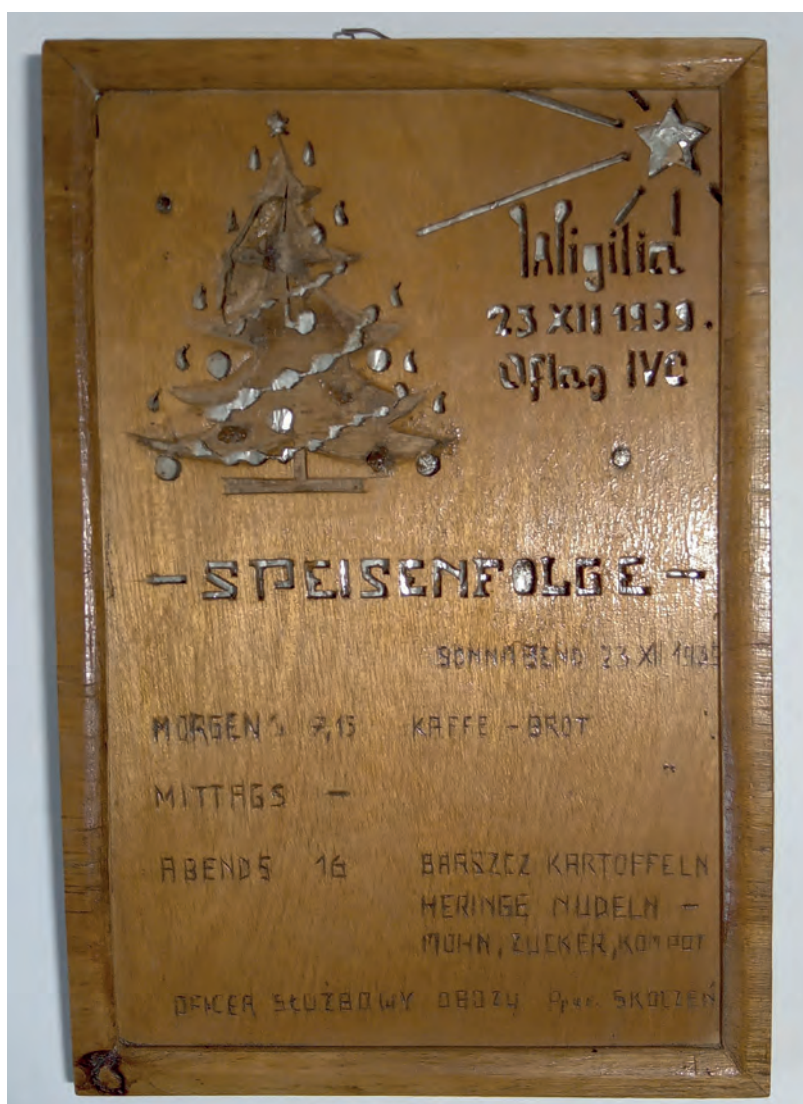 Wigilia
23 XII 1939.
Oflag IVC
- SPEISENFOLGE -
SONNABEND 23 XII 1939
MORGENS 7,15 KAFFE - BROT
MITTAGS -
ABENDS 16 BARSZCZ KARTOFFELN
HERINGE NUDELN -
MOHN, ZUCKER, KOMPOT
OFICER SŁUŻBOWY OBOZU SKOCZEŃ